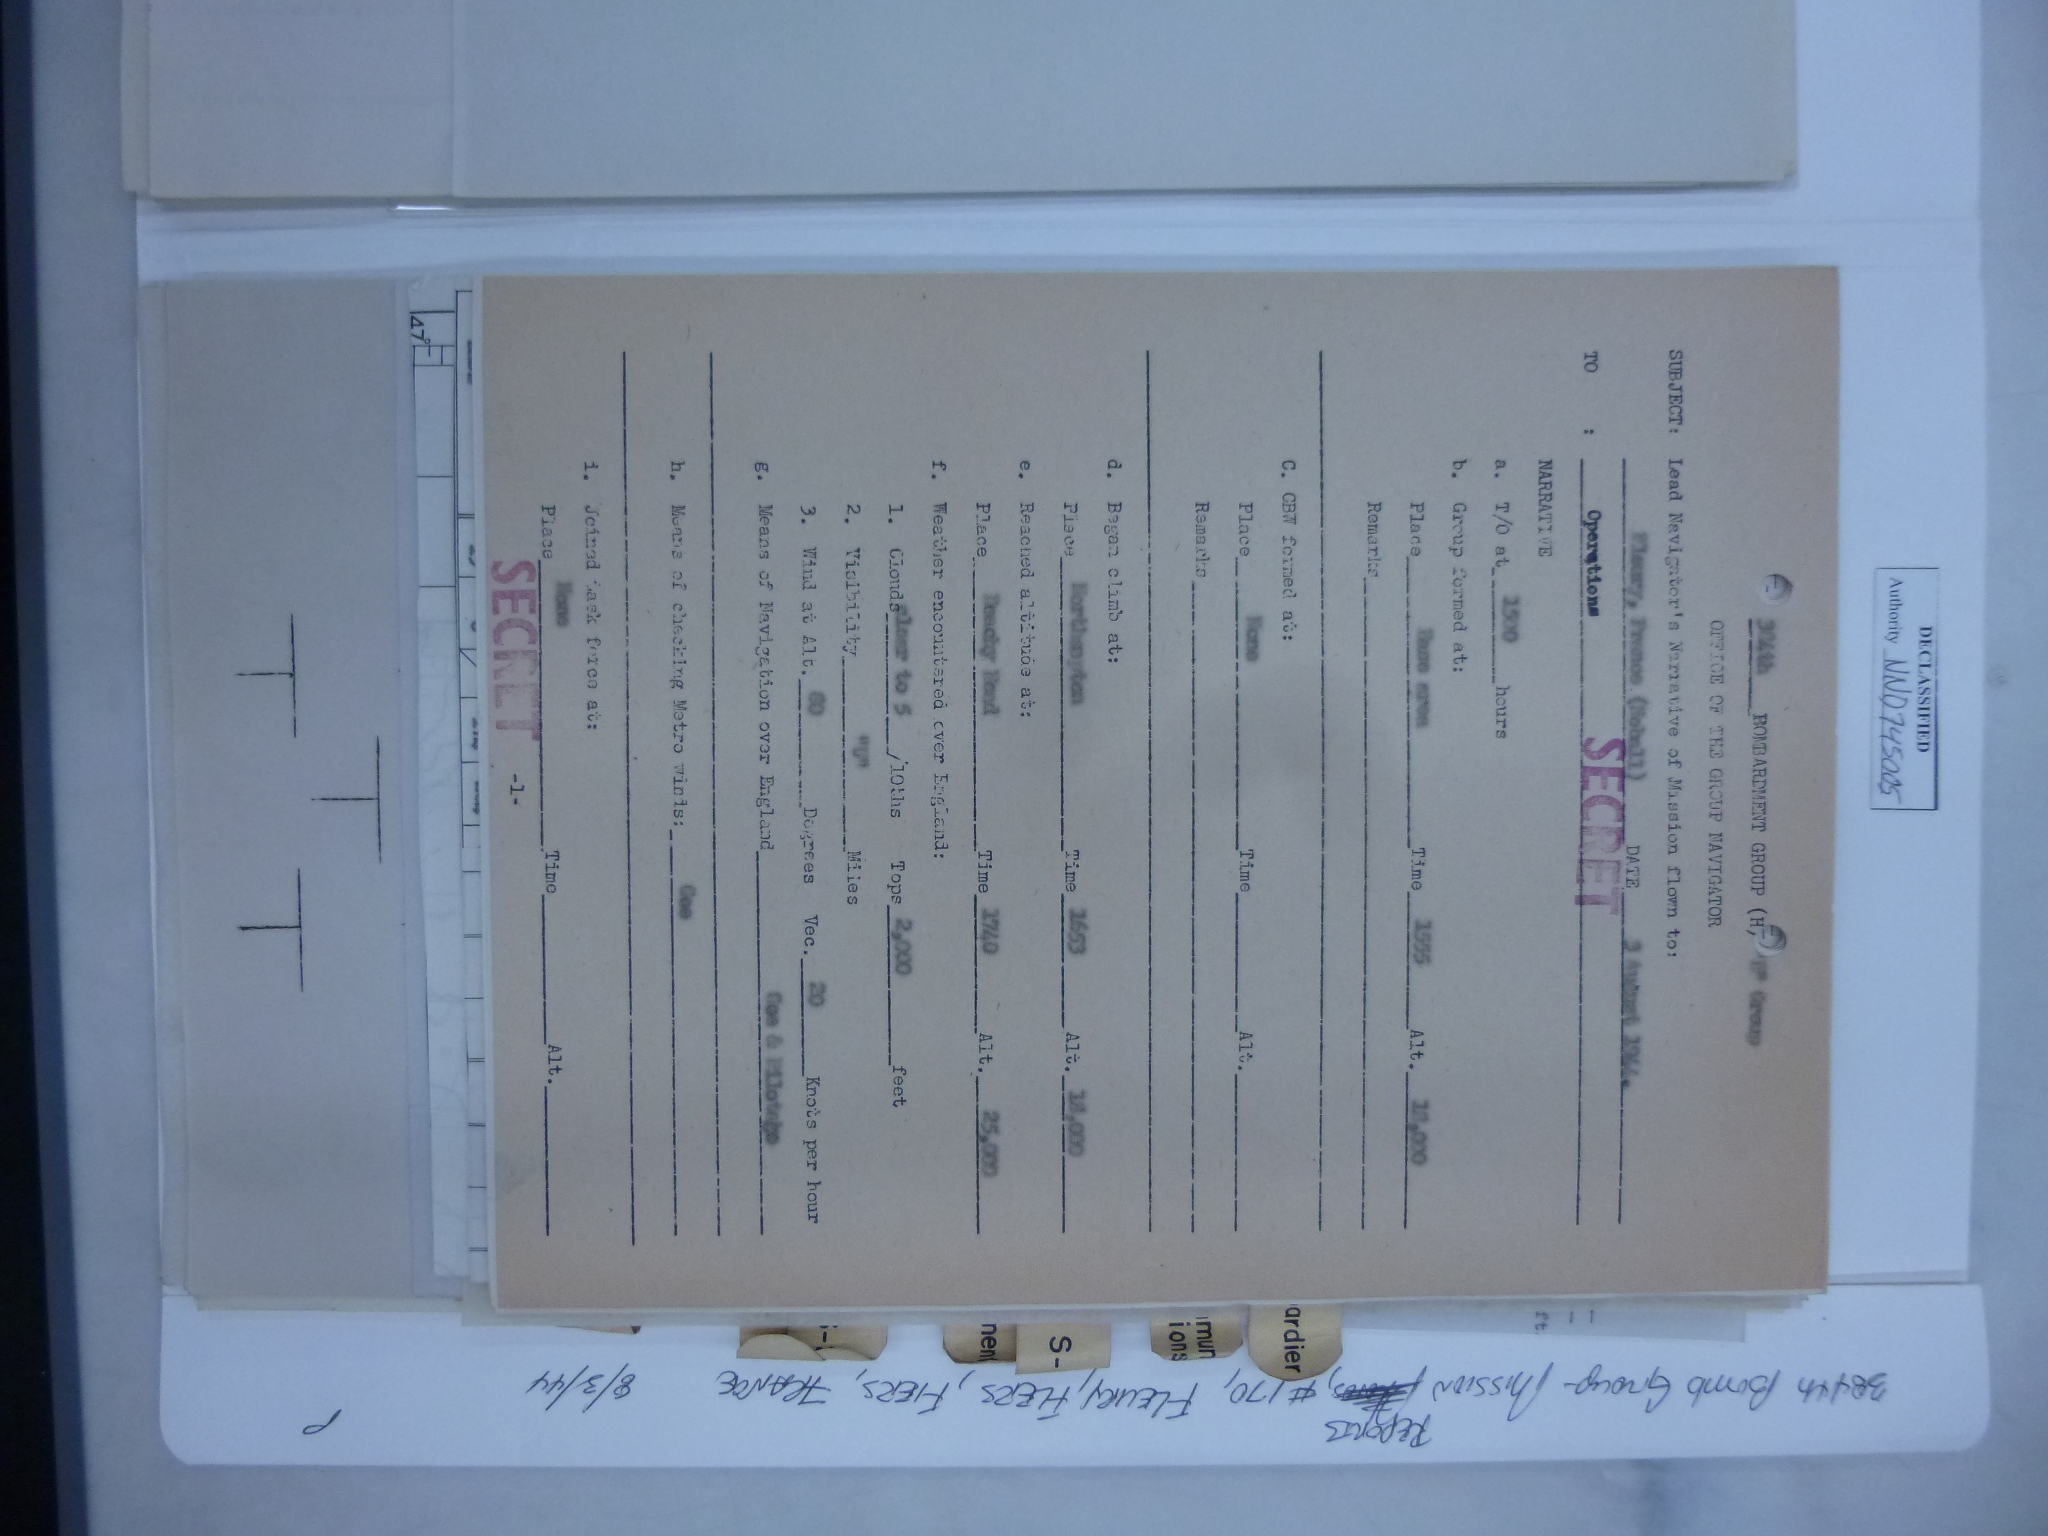 DECLASSIFIED
Authority NND745005
384th BOMBARDMENT GROUP (H) Group
OFFICE OF THE GROUP NAVIGATOR
SUBJECT: Lead Navigator's Narrative of Mission flown to:
Fleury, France DATE 3 August 1944.
TO : Operations
SECRET
NARRATIVE
a. T/O at 1500 hours
b. Group formed at:
Place Base area Time 1555 Alt. 
Remarks
C. CBW formed at:
Place None Time Alt.
Remarks
d. Began climb at:
Place Northampton Time 1653 Alt. 
e. Reached altitude at:
Place Beachy Head Time 1740 Alt. 25,000
f. Weather encountered over England:
1. Clouds clear to 5 /10ths Tops 2,000 feet
2. Visibility "U" Miles
3. Wind at Alt. Degrees Vec. 20 Knots per hour
g. Means of Navigation over England Gee & Pilotage
h. Means of checking Metro winds: Gee
i. Joined task force at:
Place None Time Alt.
SECRET
-1-
47°
ardier
mun
ions
S-
nen
ft.
384th Bomb Group - Mission Reports, #170, Fleury, Flers, FRANCE 8/3/44
P